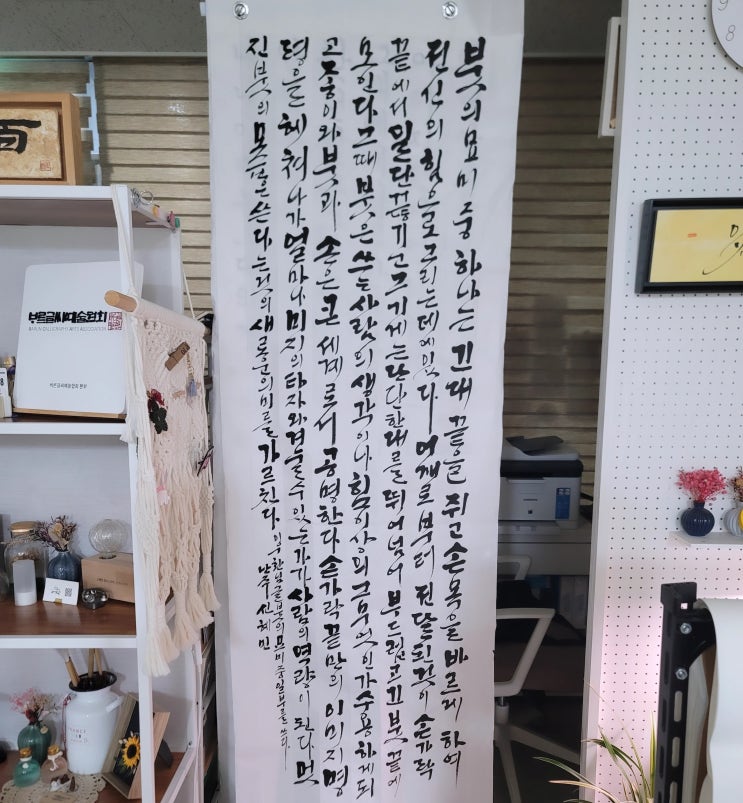 붓의 묘미 중 하나는 긴 대 끝을 쥐고 손목을 바르게 하여
전신의 힘으로 그리는데에있다 어깨로부터 전달된것이 손가락
끝에서 일단 끊기고 그 기세는 단단한 대를 뛰어넘어 부드럽고 긴 붓 끝에
모인다 그때 붓은 쓰는 사람의 생각이나 힘 이상의 그 무엇인가 수용하게 되
고 종이와 붓과 손은 큰 세계로서 공명한다 손가락 끝만의 이미지 명
령을 헤쳐 나가 얼마나 미지의 타자와 겨눌 수 있는가가 사람의 역량이 된다 먹
진 붓의 모습은 쓴다는것의 새로운의미를 가르친다
이우환님 글 붓의 묘미 중 일부를 쓰다
난주 신혜민
百
바른글씨예술협회
BARUN CALLIGRAPHY ARTS ASSOCIATION
9
8